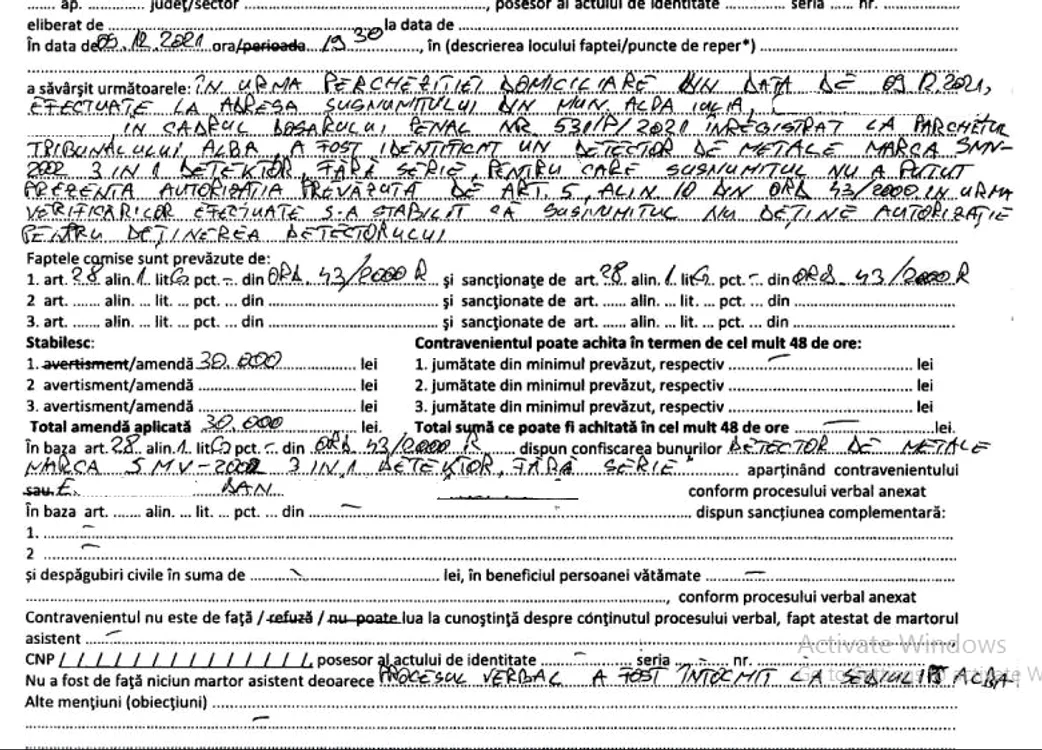 ...... ap. .............. județ/sector ................................................, posesor al actului de identitate ............. seria ...... nr. ..............
eliberat de ......................................................la data de .........................
În data de 09.12.2021 ora/perioada 19 30, în (descrierea locului faptei/puncte de reper*) ..............................
a săvârșit următoarele: ÎN URMA PERCHEZIȚIEI DOMICILIARE DIN DATA DE 09.12.2021,
EFECTUATE LA ADRESA SUSNUMITULUI DIN MUN. ALBA IULIA,
ÎN CADRUL DOSARULUI PENAL NR. 531/P/2021 ÎNREGISTRAT LA PARCHETUL
TRIBUNALULUI ALBA, A FOST IDENTIFICAT UN DETECTOR DE METALE MARCA SMV-
2002 3 IN 1 DETEKTOR, FĂRĂ SERIE, PENTRU CARE SUSNUMITUL NU A PUTUT
PREZENTA AUTORIZAȚIA PREVĂZUTĂ DE ART. 5, ALIN. 10 DIN ORD. 43/2000. IN URMA
VERIFICĂRILOR EFECTUATE S-A STABILIT CĂ SUSNUMITUL NU DEȚINE AUTORIZAȚIE
PENTRU DEȚINEREA DETECTORULUI
Faptele comise sunt prevăzute de:
1. art. 28 alin. 1 lit. G pct. - din ORD. 43/2000 R și sancționate de art. 28 alin. 1 lit. G pct. - din ORD. 43/2000 R
2 art. ....... alin. ... lit. ... pct. ... din ................................ și sancționate de art. ...... alin. ... lit. ... pct. ... din ..............................
3. art. ....... alin. ... lit. ... pct. ... din ................................ și sancționate de art. ...... alin. ... lit. ... pct. ... din ..............................
Stabilesc: Contravenientul poate achita în termen de cel mult 48 de ore:
1. avertisment/amendă 30.000 lei 1. jumătate din minimul prevăzut, respectiv — lei
2 avertisment/amendă .............................. lei 2. jumătate din minimul prevăzut, respectiv .............................. lei
3. avertisment/amendă .............................. lei 3. jumătate din minimul prevăzut, respectiv .............................. lei
Total amendă aplicată 30.000 lei. Total sumă ce poate fi achitată în cel mult 48 de ore — lei.
În baza art. 28 alin. 1 lit. G pct. - din ORD 43/2000 R dispun confiscarea bunurilor DETECTOR DE METALE
MARCA SMV-2002 3 IN 1 DETEKTOR, FĂRĂ SERIE aparținând contravenientului
sau E. DAN conform procesului verbal anexat
În baza art. ....... alin. ... lit. ... pct. ... din — dispun sancțiunea complementară:
1. —
2 —
și despăgubiri civile în suma de .............................. lei, în beneficiul persoanei vătămate —
.............................., conform procesului verbal anexat
Contravenientul nu este de față / refuză / nu poate lua la cunoștință despre conținutul procesului verbal, fapt atestat de martorul
asistent —
CNP /_/_/_/_/_/_/_/_/_/_/_/_/_/, posesor al actului de identitate — seria - nr. ..............
Nu a fost de față niciun martor asistent deoarece PROCESUL VERBAL A FOST ÎNTOCMIT LA SEDIUL IPJ ALBA.
Alte mențiuni (obiecțiuni) ..............................
—
Activate Windows